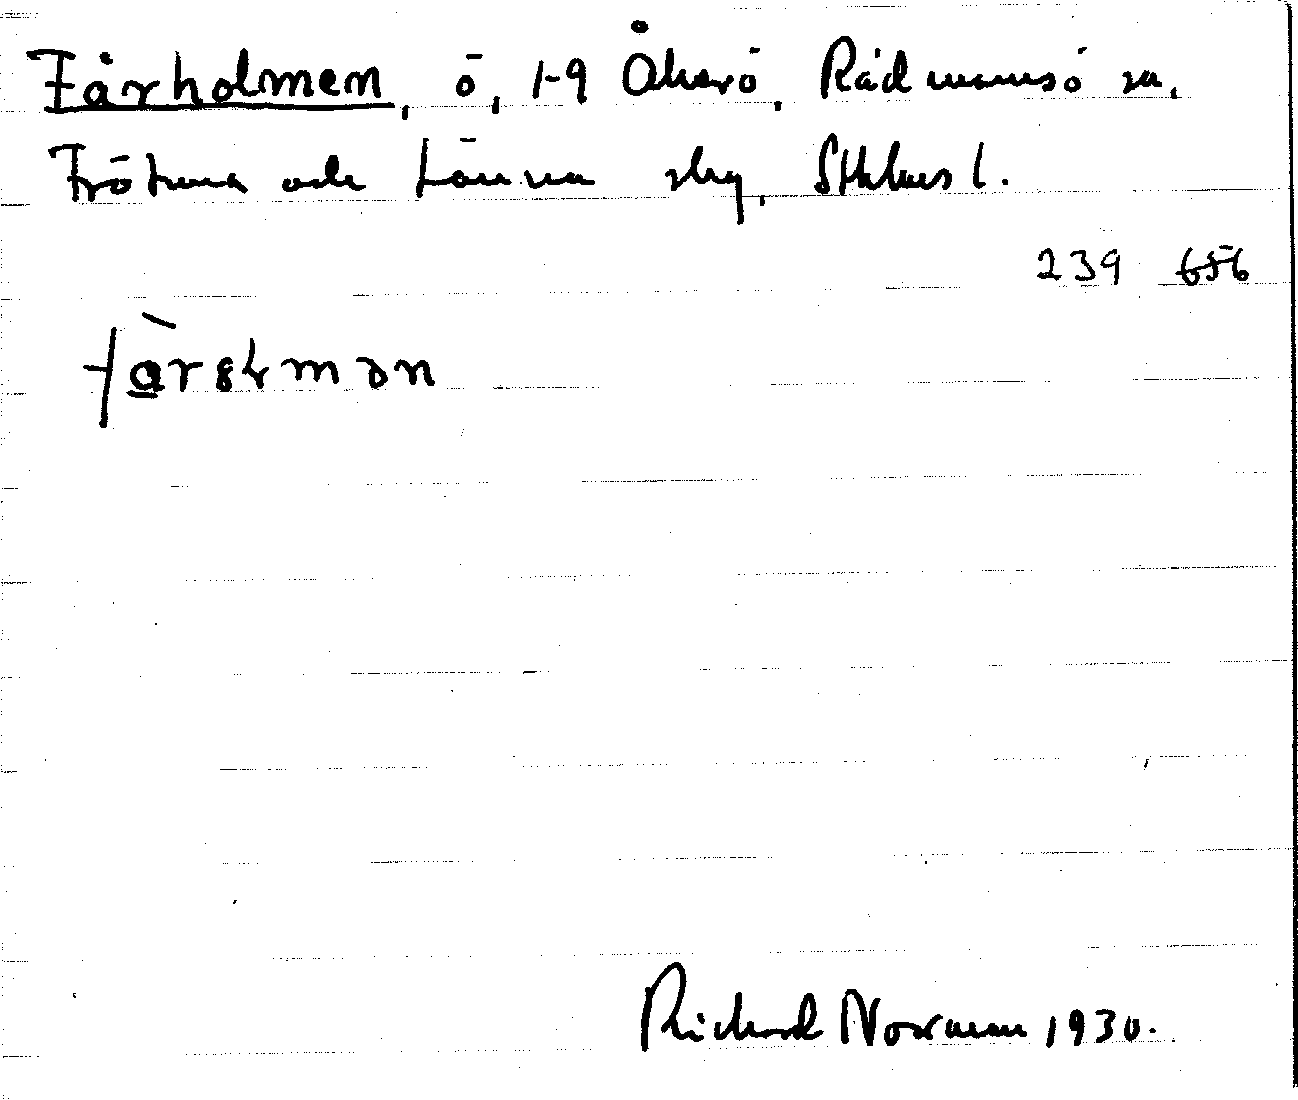 Fårholmen, ö, 1-9 Åkerö, Rådmansö sn,
Frötuna och Länna skg, Sthlms l.
239 656
Richard Norman 1930.